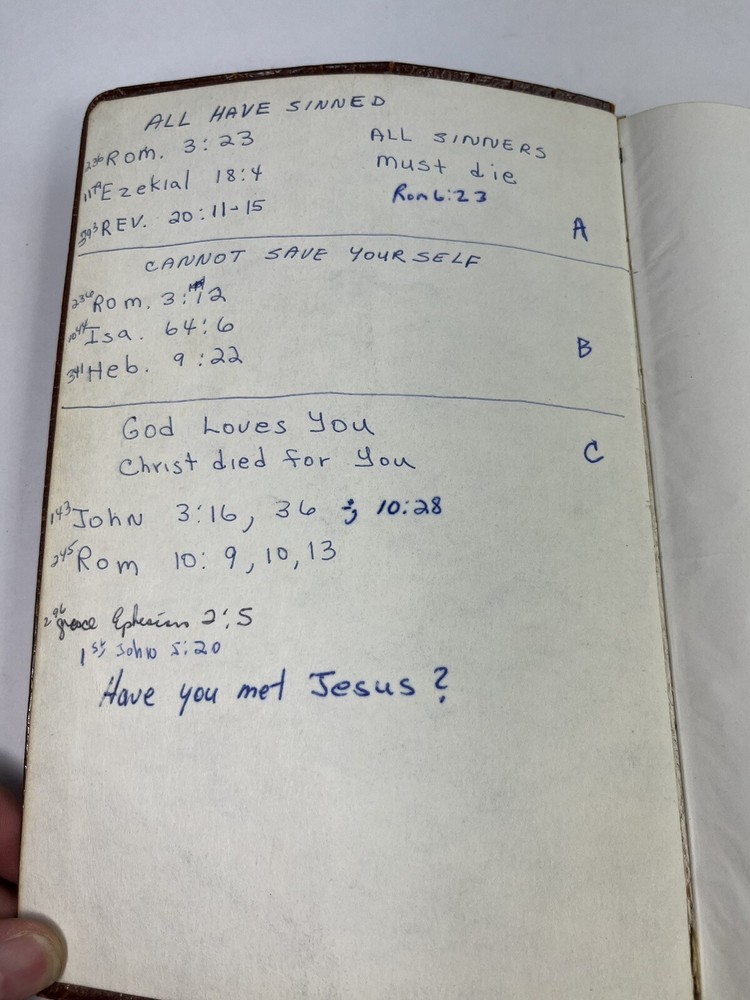 ALL HAVE SINNED
236 Rom. 3:23
Ezekial 18:4
393 REV. 20:11-15
ALL SINNERS
must die
Rom 6:23
A
CANNOT SAVE YOURSELF
236 Rom. 3:12
1044 Isa. 64:6
341 Heb. 9:22
B
God Loves You
Christ died for You
C
143 John 3:16, 36 ; 10:28
245 Rom 10:9,10,13
296 grace Ephesians 2:5
1st John 5:20
Have you met Jesus?